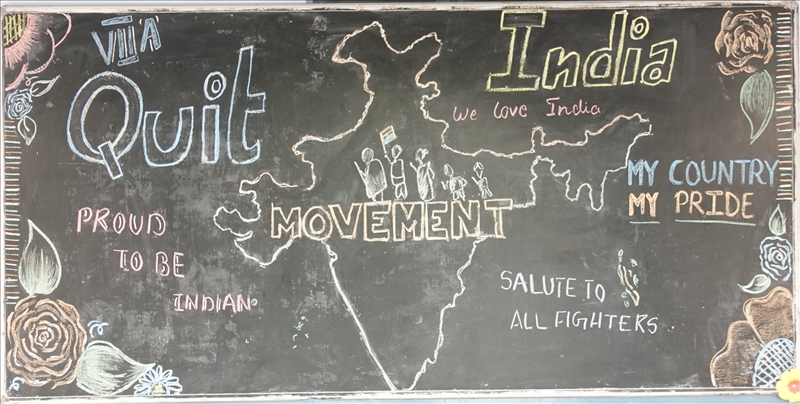 VII 'A'
Quit India
We love India
MOVEMENT
MY COUNTRY
MY PRIDE
PROUD
TO BE
INDIAN
SALUTE TO
ALL FIGHTERS